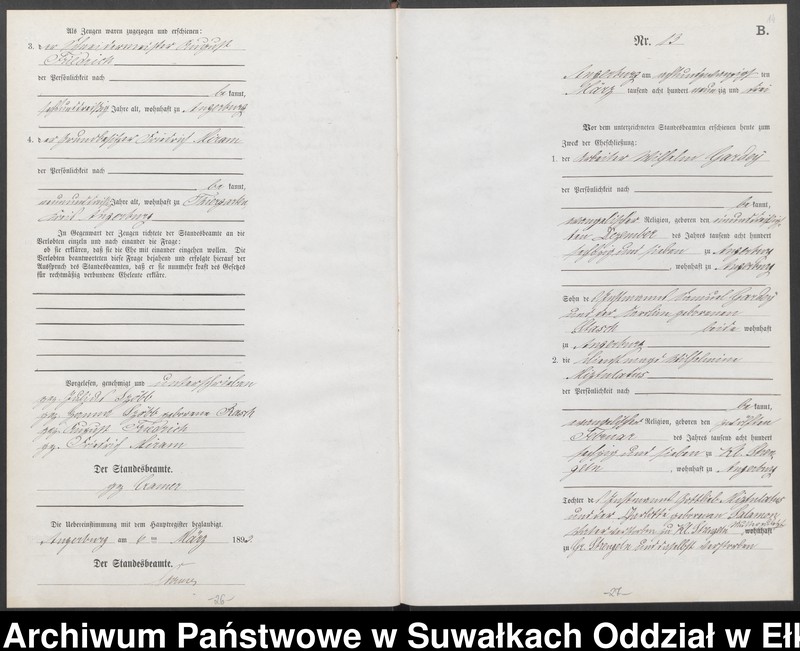 Als Zeugen waren zugezogen und erschienen:
3. der Schneidermeister August
Friedrich
der Persönlichkeit nach
be kannt,
Jahre alt, wohnhaft zu Angerburg
4. der Grundbesitzer Friedrich Miram
der Persönlichkeit nach
be kannt,
Jahre alt, wohnhaft zu Thiergarten
Kreis Angerburg
In Gegenwart der Zeugen richtete der Standesbeamte an die
Verlobten einzeln und nach einander die Frage:
ob sie erklären, daß sie die Ehe mit einander eingehen wollen. Die
Verlobten beantworteten diese Frage bejahend und erfolgte hierauf der
Ausspruch des Standesbeamten, daß er sie nunmehr kraft des Gesetzes
für rechtmäßig verbundene Eheleute erkläre.
Vorgelesen, genehmigt und unterschrieben
gez.
gez. geborene
gez. August Friedrich
gez. Friedrich Miram
Der Standesbeamte.
gez. Cramer
Die Uebereinstimmung mit dem Hauptregister beglaubigt.
Angerburg am 6 ten März 1893
Der Standesbeamte.
-26-
B.
Nr. 13
Angerburg am achtundzwanzigsten
März tausend acht hundert neunzig und drei
Vor dem unterzeichneten Standesbeamten erschienen heute zum
Zweck der Eheschließung:
1. der Arbeiter Wilhelm
der Persönlichkeit nach
be kannt,
evangelischer Religion, geboren den
Dezember des Jahres tausend acht hundert
sechszig und sieben zu Angerburg
, wohnhaft zu Angerburg
Sohn des Instmanns Samuel
und der geborenen
beide wohnhaft
zu Angerburg
2. die Dienstmagd Wilhelmine
der Persönlichkeit nach
be kannt,
evangelischer Religion, geboren den zwölften
Februar des Jahres tausend acht hundert
sechszig und sieben zu Kl. Sten-
geln, wohnhaft zu Angerburg
Tochter des Instmanns Gottlieb
und der geborenen Salamon
Vater verstorben zu Kl. Stengeln Mutter wohnhaft
zu Gr. Stengeln und daselbst verstorben
-27-
Archiwum Państwowe w Suwałkach Oddział w Ełk